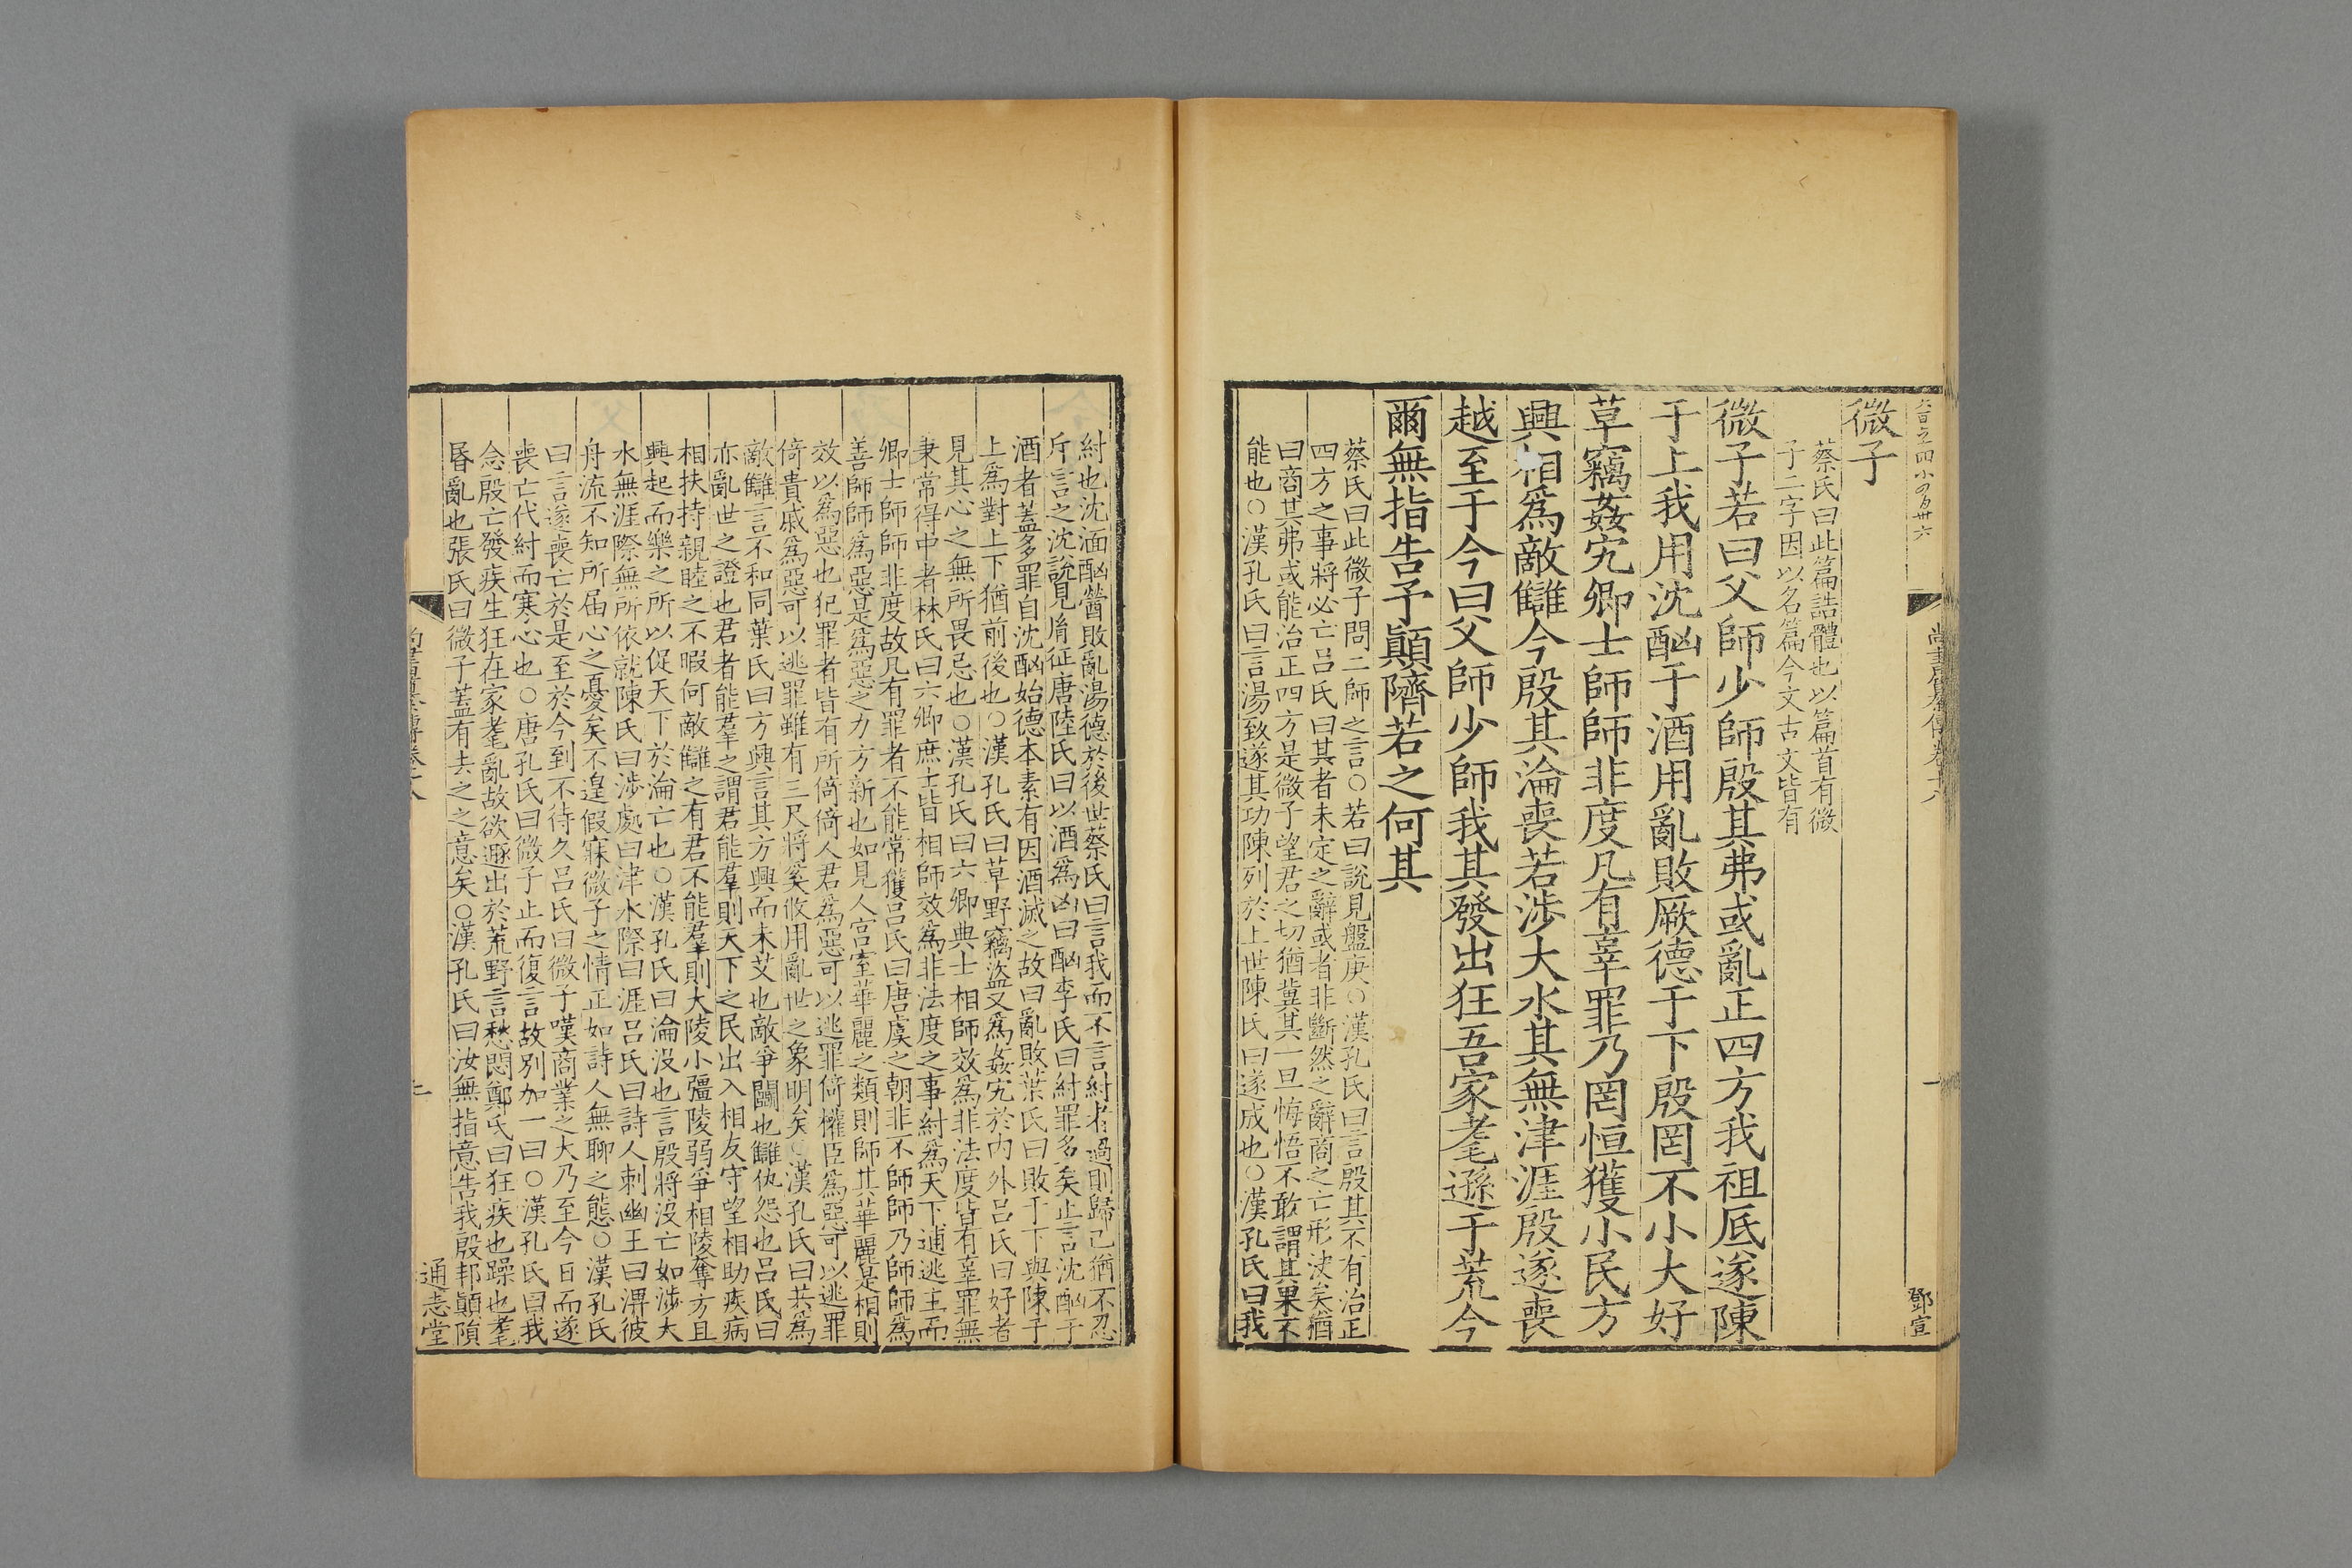 微子
蔡氏曰此篇誥體也以篇首有微
子二字因以名篇今文古文皆有
微子若曰父師少師殷其弗或亂正四方我祖厎遂陳
于上我用沈酗于酒用亂敗厥德于下殷罔不小大好
草竊姦宄卿士師師非度凡有辜罪乃罔恒獲小民方
興相爲敵讎今殷其淪喪若涉大水其無津涯殷遂喪
越至于今曰父師少師我其發出狂吾家耄遜于荒今
爾無指告予顚隮若之何其
蔡氏曰此微子問二師之言○若曰說見盤庚○漢孔氏曰言殷其不有治正
四方之事將必亡呂氏曰其者未定之辭或者非斷然之辭商之亡形決矣猶
曰商其弗或能治正四方是微子望君之切猶冀其一旦悔悟不敢謂其果不
能也○漢孔氏曰言湯致遂其功陳列於上世陳氏曰遂成也○漢孔氏曰我
紂也沈湎酗醟敗亂湯德於後世蔡氏曰言我而不言紂者過則歸己猶不忍
斥言之沈說見胤征唐陸氏曰以酒爲凶曰酗李氏曰紂罪多矣止言沈酗于
酒者蓋多罪自沈酗始德本素有因酒滅之故曰亂敗葉氏曰敗于下與陳于
上爲對上下猶前後也○漢孔氏曰草野竊盜又爲姦宄於內外呂氏曰好者
見其心之無所畏忌也○漢孔氏曰六卿典士相師效爲非法度皆有辜罪無
秉常得中者林氏曰六卿庶士皆相師效爲非法度之事紂爲天下逋逃主而
卿士師師非度故凡有罪者不能常獲呂氏曰唐虞之朝非不師師乃師師爲
善師師爲惡是爲惡之力方新也如見人宮室華麗之類則師其華麗是相則
效以爲惡也犯罪者皆有所倚倚人君爲惡可以逃罪倚權臣爲惡可以逃罪
倚貴戚爲惡可以逃罪雖有三尺將奚攸用亂世之象明矣○漢孔氏曰共爲
敵讎言不和同葉氏曰方興言其方興而未艾也敵爭鬭也讎仇怨也呂氏曰
亦亂世之證也君者能羣之謂君能羣則天下之民出入相友守望相助疾病
相扶持親睦之不暇何敵讎之有君不能羣則大陵小彊陵弱爭相陵奪方且
興起而樂之所以促天下於淪亡也○漢孔氏曰淪沒也言殷將沒亡如涉大
水無涯際無所依就陳氏曰涉處曰津水際曰涯呂氏曰詩人刺幽王曰淠彼
舟流不知所届心之憂矣不遑假寐微子之情正如詩人無聊之態○漢孔氏
曰言遂喪亡於是至於今到不待久呂氏曰微子嘆商業之大乃至今日而遂
喪亡代紂而寒心也○唐孔氏曰微子止而復言故別加一曰○漢孔氏曰我
念殷亡發疾生狂在家耄亂故欲遯出於荒野言愁悶鄭氏曰狂疾也躁也耄
昏亂也張氏曰微子蓋有去之之意矣○漢孔氏曰汝無指意告我殷邦顚隕
通志堂
鄧宣